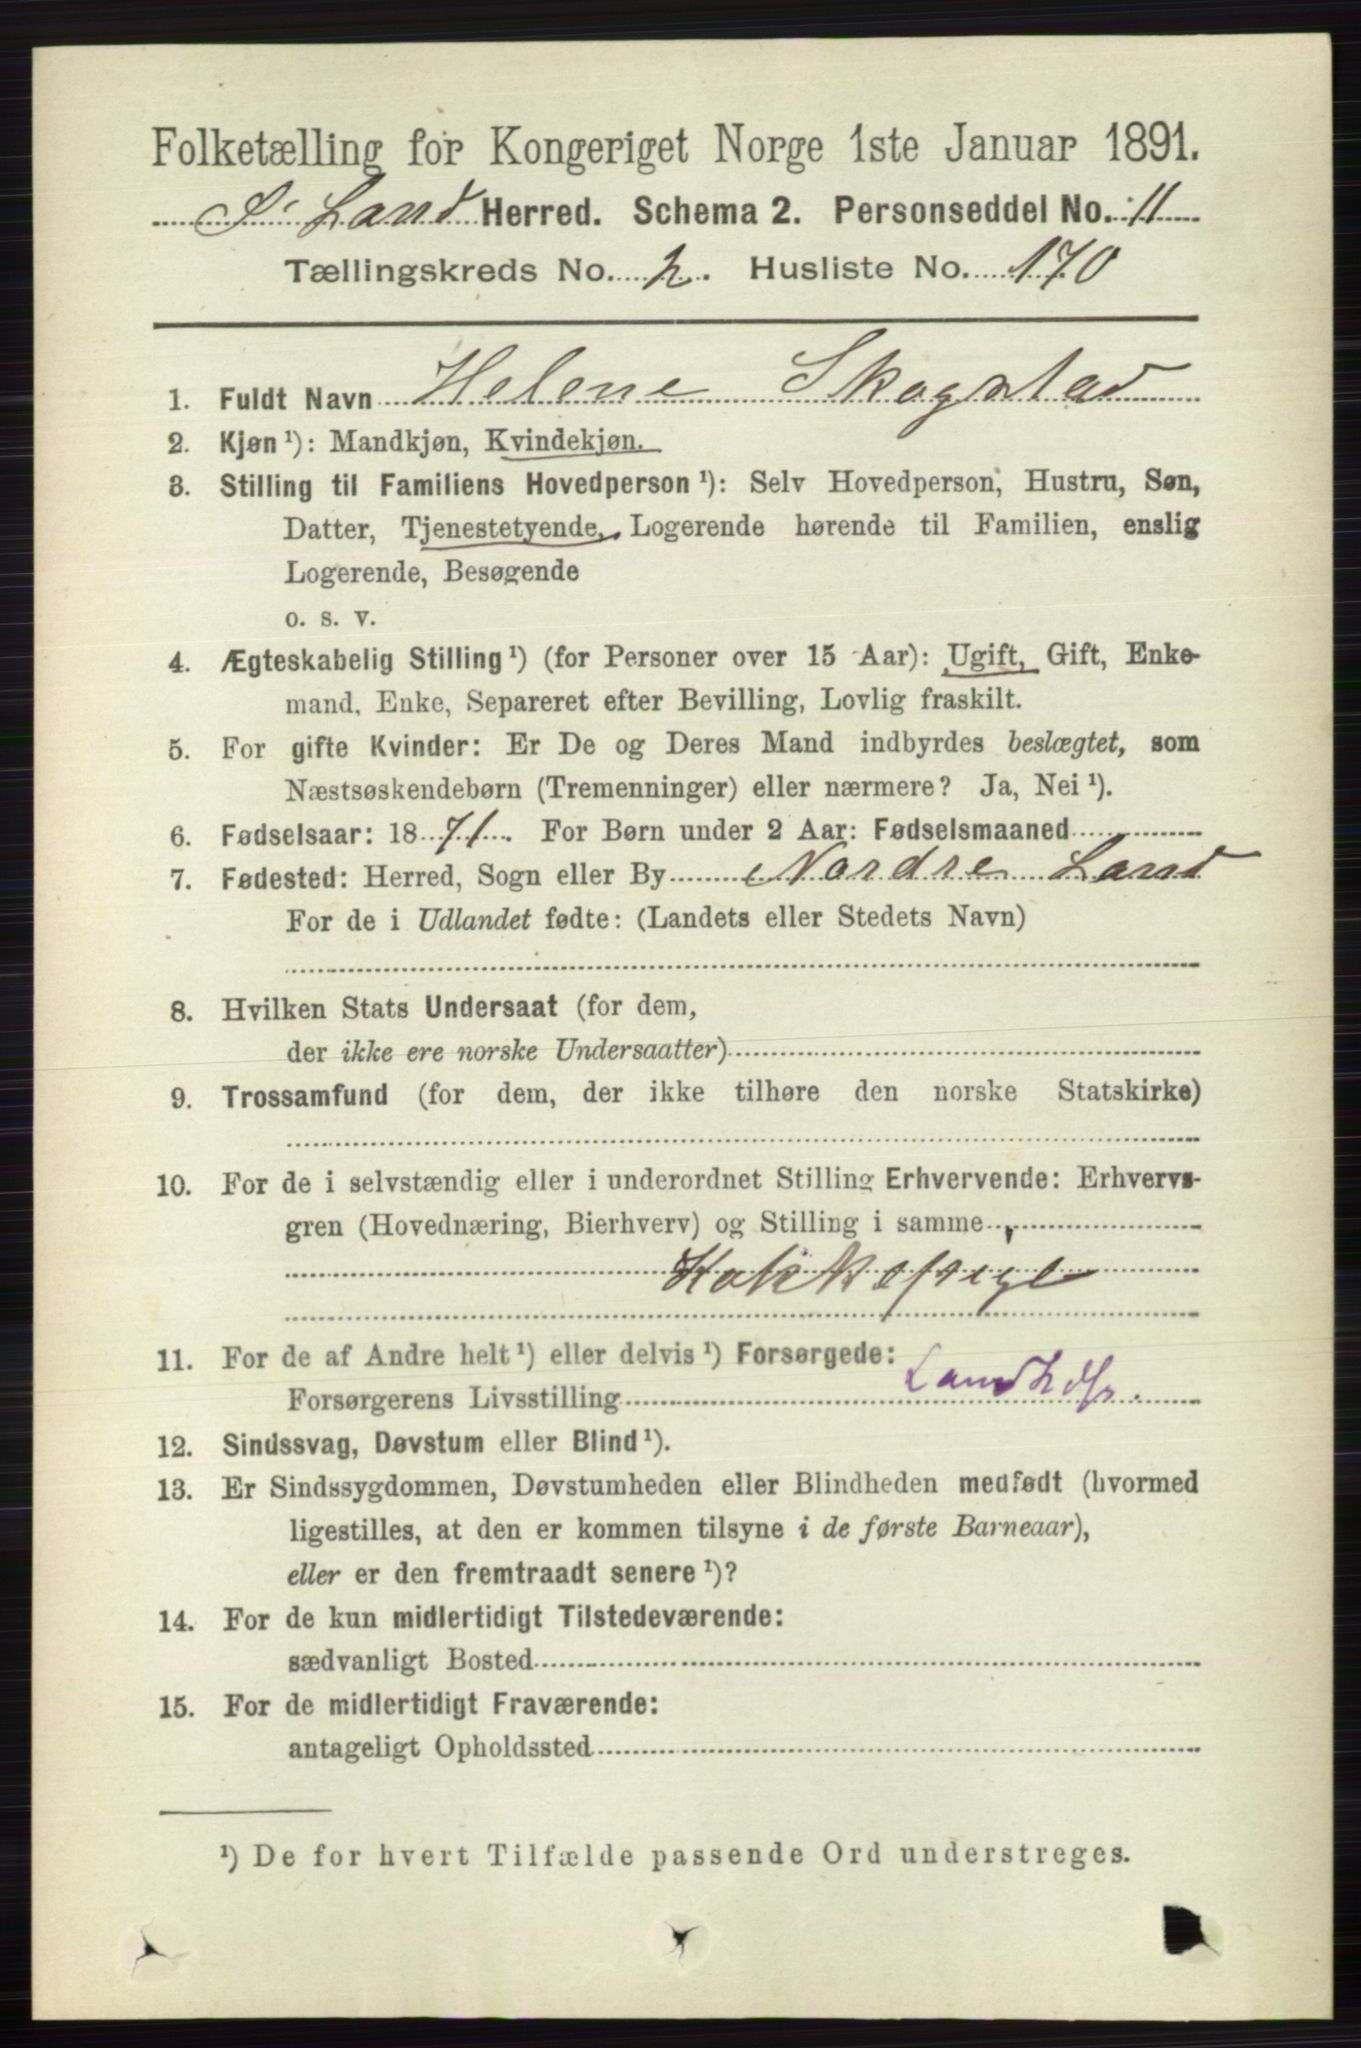 Folketælling for Kongeriget Norge 1ste Januar 1891.
S. Land Herred. Schema 2. Personseddel No. 11
Tællingskreds No. 2. Husliste No. 170
1. Fuldt Navn Helene Skogstad
2. Kjøn ¹): Mandkjøn, Kvindekjøn.
3. Stilling til Familiens Hovedperson ¹): Selv Hovedperson, Hustru, Søn,
Datter, Tjenestetyende, Logerende hørende til Familien, enslig
Logerende, Besøgende
o. s. v.
4. Ægteskabelig Stilling ¹) (for Personer over 15 Aar): Ugift, Gift, Enke-
mand, Enke, Separeret efter Bevilling, Lovlig fraskilt.
5. For gifte Kvinder: Er De og Deres Mand indbyrdes beslægtet, som
Næstsøskendebørn (Tremenninger) eller nærmere? Ja, Nei ¹).
6. Fødselsaar: 1871. For Børn under 2 Aar: Fødselsmaaned
7. Fødested: Herred, Sogn eller By Nordre Land
For de i Udlandet fødte: (Landets eller Stedets Navn)
8. Hvilken Stats Undersaat (for dem,
der ikke ere norske Undersaatter)
9. Trossamfund (for dem, der ikke tilhøre den norske Statskirke)
10. For de i selvstændig eller i underordnet Stilling Erhvervende: Erhvervs-
gren (Hovednæring, Bierhverv) og Stilling i samme
Kokkepige
11. For de af Andre helt ¹) eller delvis ¹) Forsørgede:
Forsørgerens Livsstilling
12. Sindssvag, Døvstum eller Blind ¹).
13. Er Sindssygdommen, Døvstumheden eller Blindheden medfødt (hvormed
ligestilles, at den er kommen tilsyne i de første Barneaar),
eller er den fremtraadt senere ¹)?
14. For de kun midlertidigt Tilstedeværende:
sædvanligt Bosted
15. For de midlertidigt Fraværende:
antageligt Opholdssted
¹) De for hvert Tilfælde passende Ord understreges.